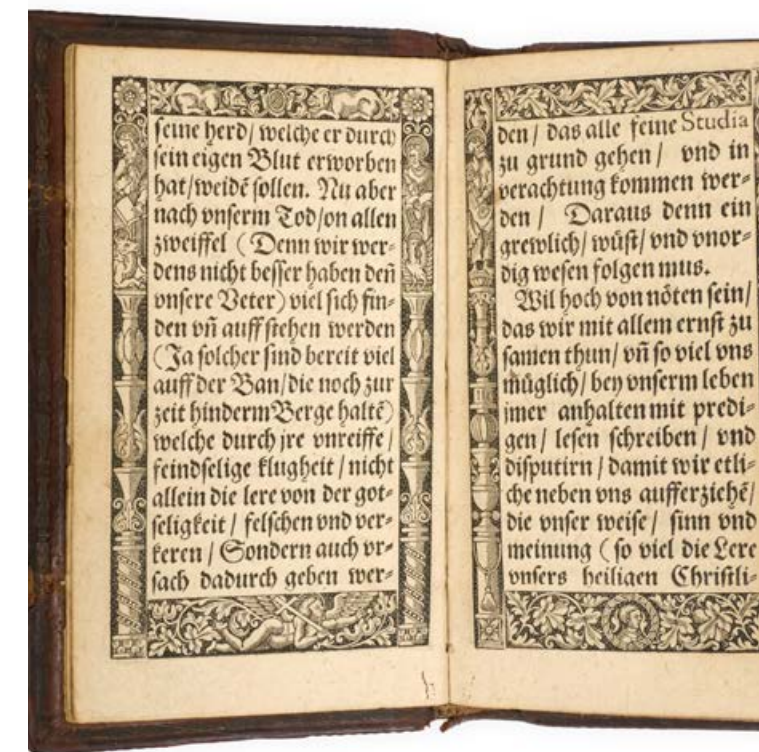 seine herd / welche er durch
sein eigen Blut erworben
hat / weidē sollen. Nu aber
nach vnserm Tod / on allen
zweiffel ( Denn wir wer⸗
dens nicht besser haben deñ
vnsere Veter ) viel sich fin⸗
den vñ auff stehen werden
( Ja solcher sind bereit viel
auff der Ban / die noch zur
zeit hinderm Berge haltē )
welche durch jre vnreiffe /
feindselige klugheit / nicht
allein die lere von der got⸗
seligkeit / felschen vnd ver⸗
keren / Sondern auch vr⸗
sach dadurch geben wer⸗
den / das alle feine Studia
zu grund gehen / vnd in
verachtung kommen wer⸗
den / Daraus denn ein
grewlich / wüst / vnd vnor⸗
dig wesen folgen mus.
Wil hoch von nöten sein /
das wir mit allem ernst zu
samen thun / vñ so viel vns
müglich / bey vnserm leben
jmer anhalten mit predi⸗
gen / lesen schreiben / vnd
disputirn / damit wir etli⸗
che neben vns aufferziehē /
die vnser weise / sinn vnd
meinung ( so viel die Lere
vnsers heiligen Christli⸗